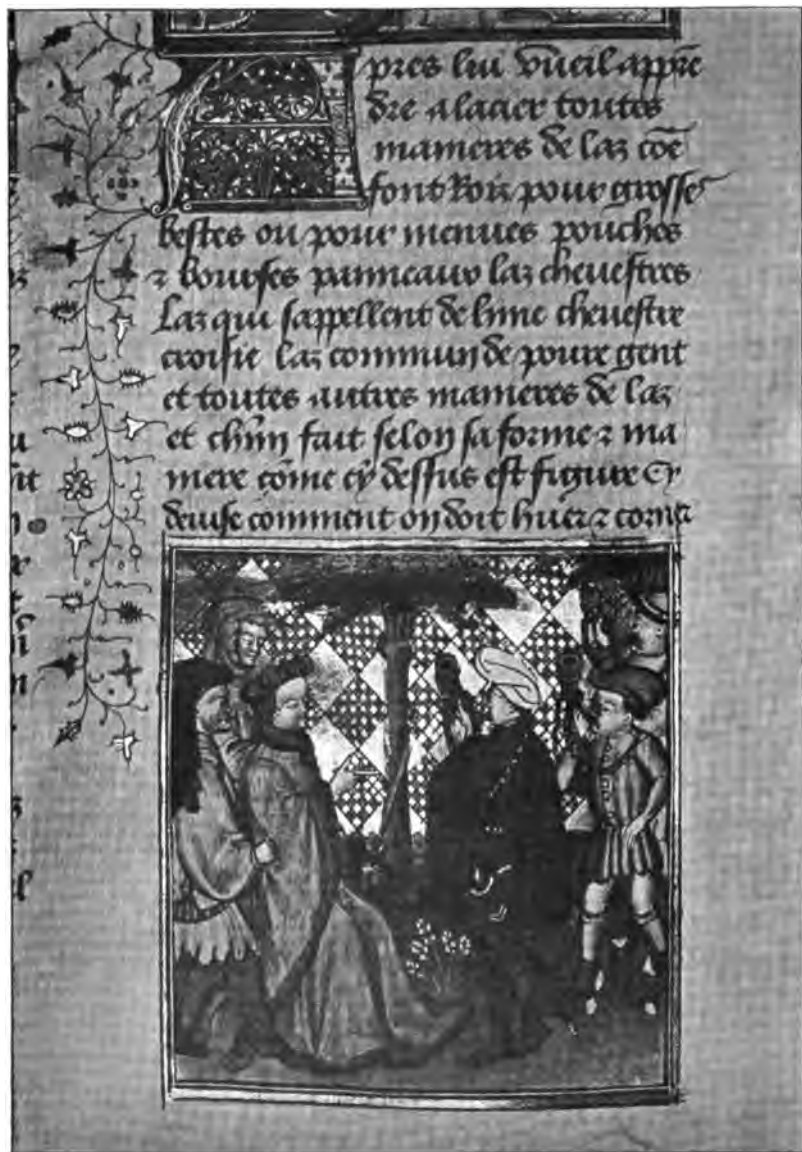 Apres lui vueil appr̄e
dre a lacier toutes
manieres de laz cōe
font Rois pour grosse
bestes ou pour menues pouches
⁊ bourses panneaux laz cheuestres
Laz qui sappellent de lime cheuestre
croisie laz commun de poure gent
et toutes autres manieres de laz
et chūn fait selon sa forme ⁊ ma
niere cōme cy dessus est figure Cy
deuise comment on doit huer ⁊ corner